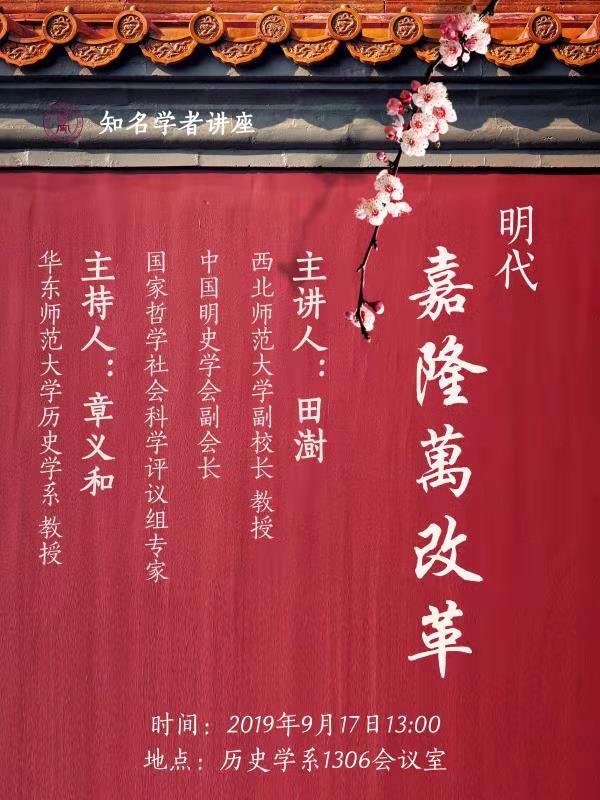 知名学者讲座
明代
嘉隆萬改革
主讲人：田澍
西北师范大学副校长 教授
中国明史学会副会长
国家哲学社会科学评议组专家
主持人：章义和
华东师范大学历史学系 教授
时间：2019年9月17日13:00
地点：历史学系1306会议室